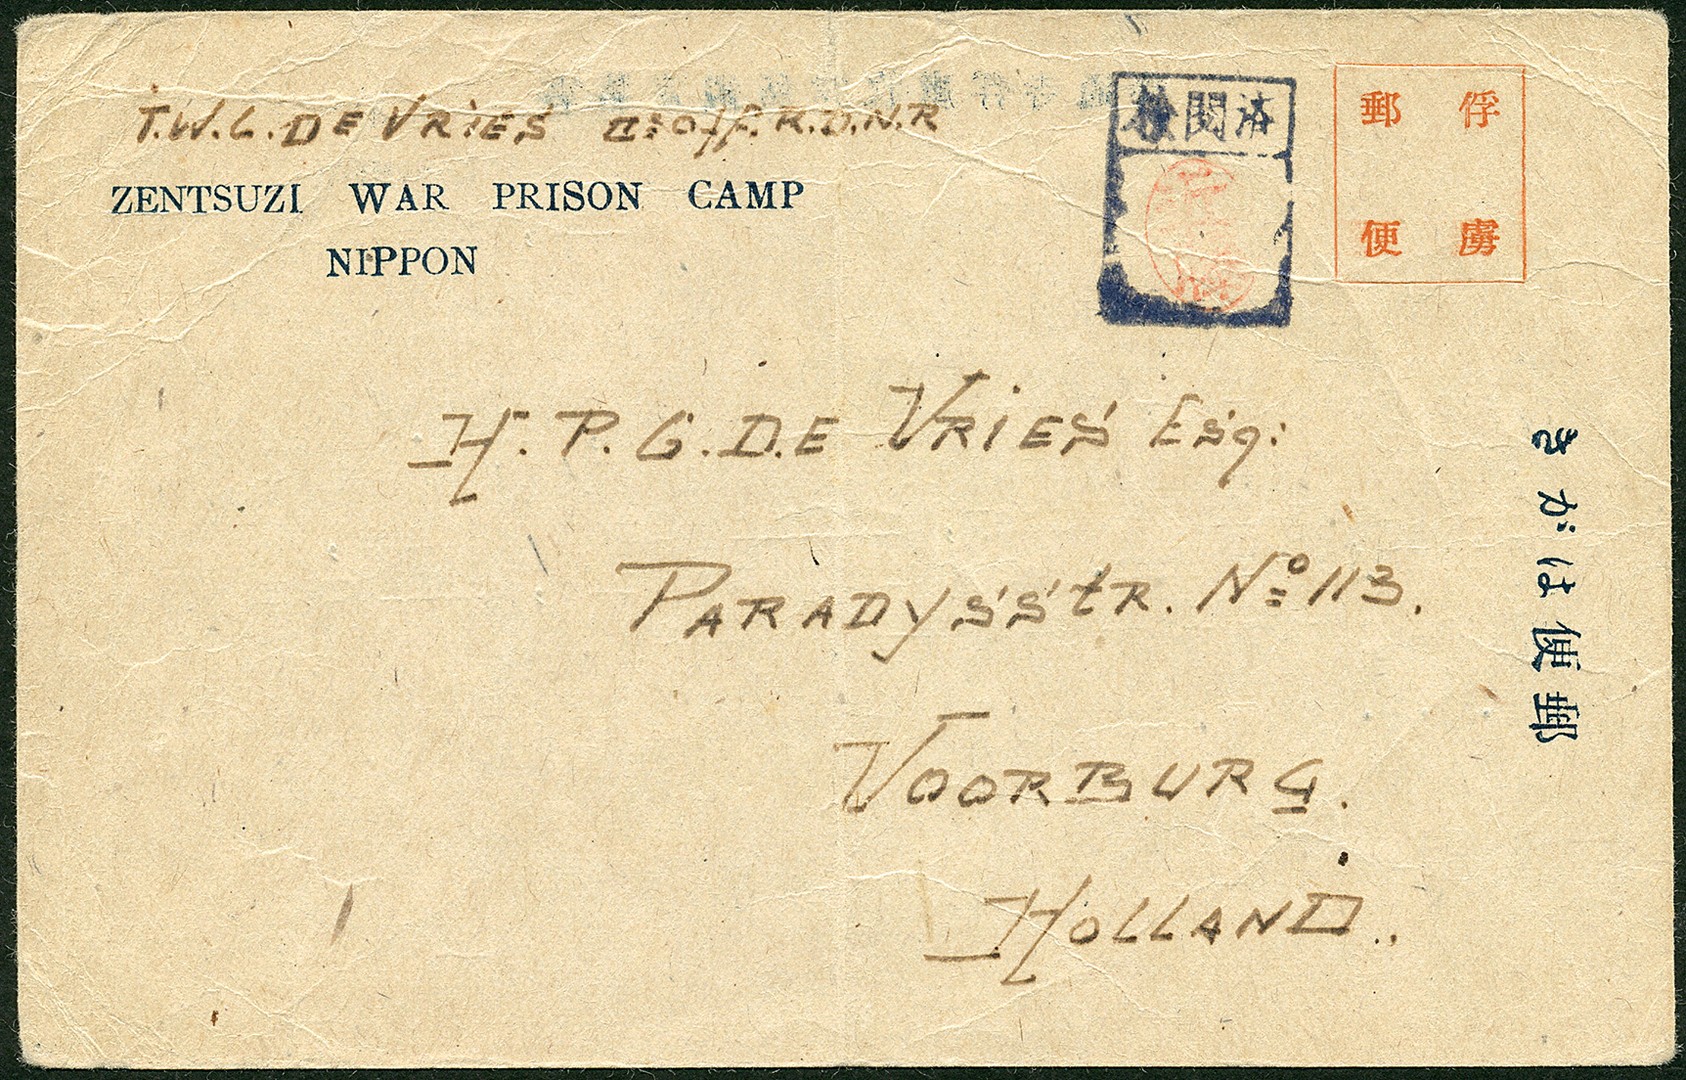 T.W.L. DE VRIES
ZENTSUZI WAR PRISON CAMP
NIPPON
検閲済
俘虜
郵便
H. P. G. DE VRIES Esq:
PARADYSSTR. Nº 113.
VOORBURG.
HOLLAND.
郵便はがき